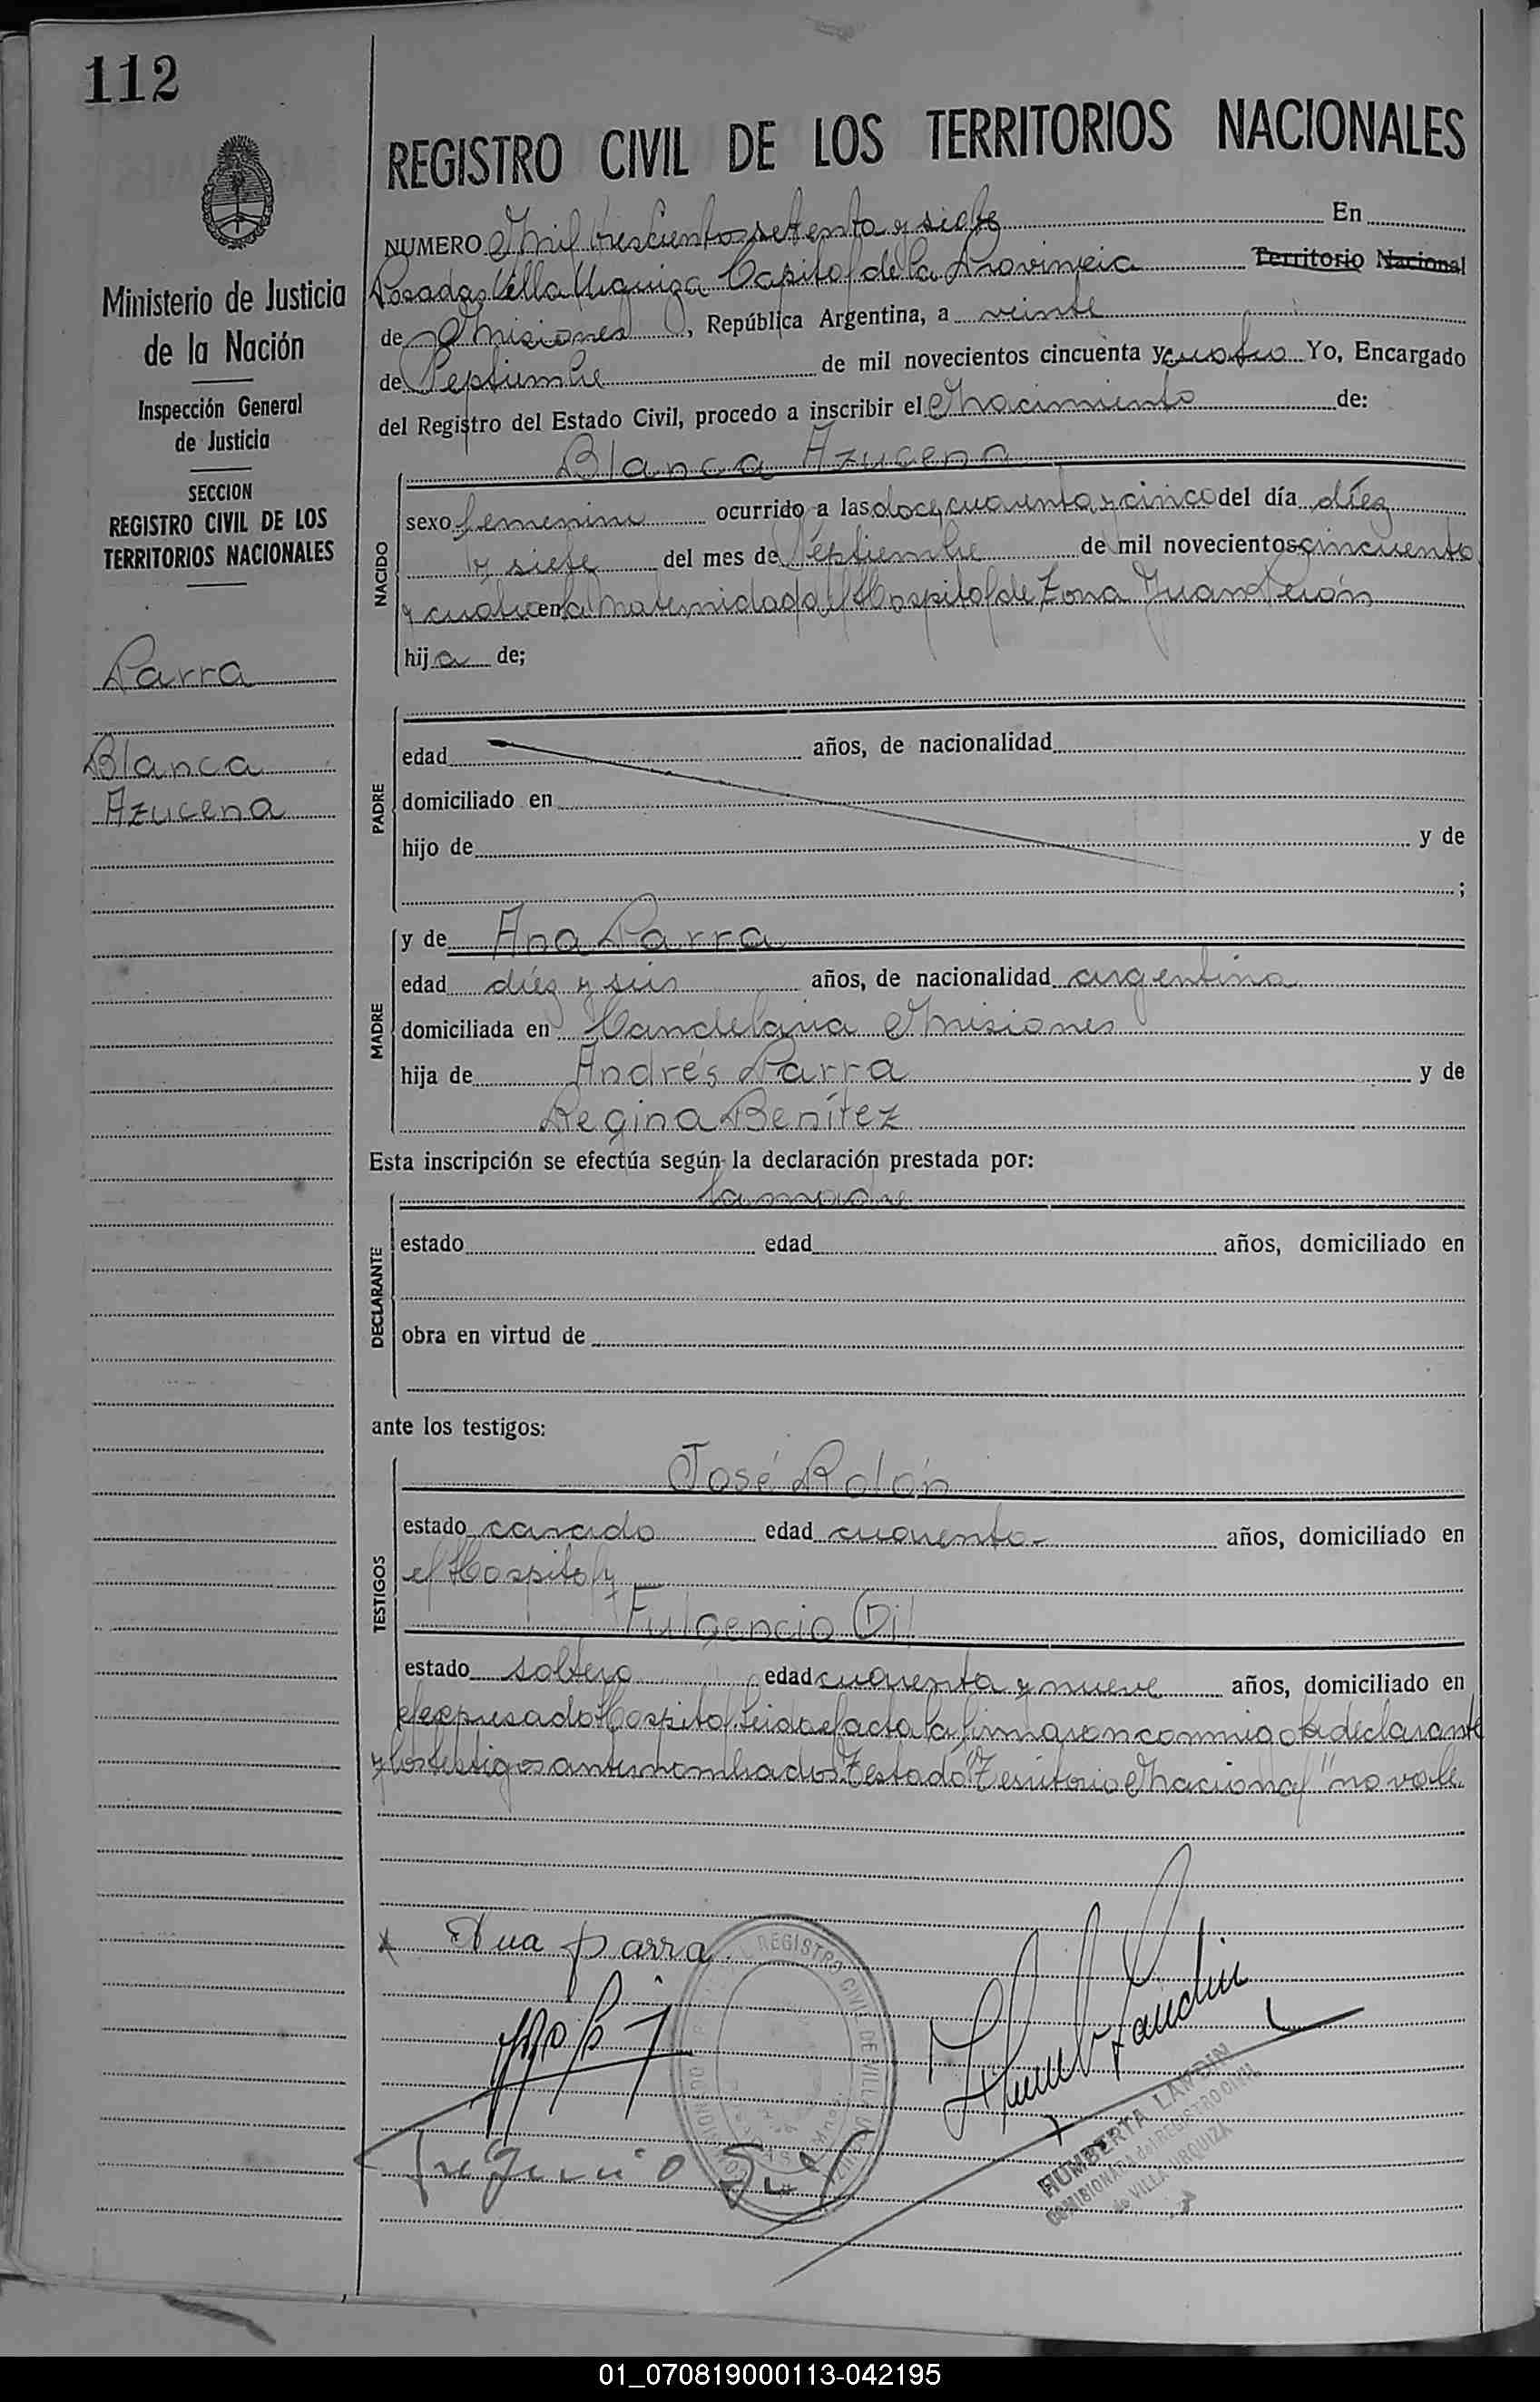 112
REGISTRO CIVIL DE LOS TERRITORIOS NACIONALES
Ministerio de Justicia
de la Nación
Inspección General
de Justicia
SECCION
REGISTRO CIVIL DE LOS
TERRITORIOS NACIONALES
Parra
Blanca
Azucena
NUMERO Mil trescientos setenta y siete En
Posadas Villa Urquiza Capital de la Provincia Territorio Nacional
de Misiones, República Argentina, a veinte
de Septiembre de mil novecientos cincuenta y cuatro Yo, Encargado
del Registro del Estado Civil, procedo a inscribir el Nacimiento de:
NACIDO
Blanca Azucena
sexo femenino ocurrido a las doce, cuarenta y cinco del día diéz
y siete del mes de Septiembre de mil novecientos cincuenta
y cuatro en la Maternidad del Hospital de Zona Juan Perón
hija de;
PADRE
edad años, de nacionalidad
domiciliado en
hijo de y de
;
MADRE
y de Ana Parra
edad diéz y seis años, de nacionalidad argentina
domiciliada en Candelaria Misiones
hija de Andrés Parra y de
Regina Benítez
Esta inscripción se efectúa según la declaración prestada por:
DECLARANTE
la madre
estado edad años, domiciliado en
obra en virtud de
ante los testigos:
TESTIGOS
José Rolón
estado casado edad cuarenta años, domiciliado en
el Hospital y
Fulgencio Gil
estado soltero edad cuarenta y nueve años, domiciliado en
el expresado Hospital. Leida el acta la firmaron conmigo la declarante
y los testigos antes nombrados. Testado "Territorio Nacional" no vale.
x Ana parra
REGISTRO CIVIL DE VILLA URQUIZA
HUMBERTA LANDIN
COMISIONADA del REGISTRO CIVIL
de VILLA URQUIZA
01_070819000113-042195